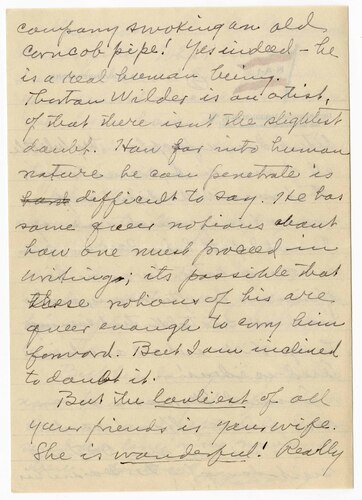 company smoking an old
corncob pipe! Yes indeed - he
is a real human being.
Thorton Wilder is an artist,
of that there isn't the slightest
doubt. How far into human
nature he can penetrate is
hard difficult to say. He has
some queer notions about
how one must proceed in
writing; its possible that
these notions of his are
queer enough to carry him
forward. But I am inclined
to doubt it.
But the loveliest of all
your friends is your wife.
She is wonderful! Really